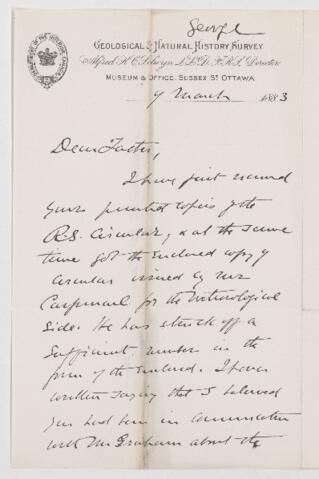 George
GEOLOGICAL & NATURAL HISTORY SURVEY
Alfred R.C. Selwyn LL.D. F.R.S. Director
MUSEUM & OFFICE. SUSSEX ST. OTTAWA
9 March 1883
Dear Father,
I have just received
yours printed copies of the
R.S. Circular, & at the same
time got the enclosed copy of
circular issued by Mr
Carpmael for the Meteorological
Side. He has struck off a
Sufficient number in the
form of the Enclosed. I have
written saying that I believed
you had been in communication
with Mr Graham about the